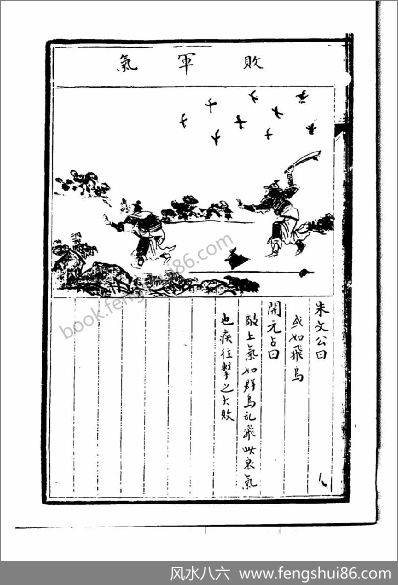 敗軍氣
朱文公曰
或如飛鳥
開元占曰
敵上氣如群鳥乱飛此衰氣
也疾往擊之大敗
book.fengshui86.com
风水八六 www.fengshui86.com